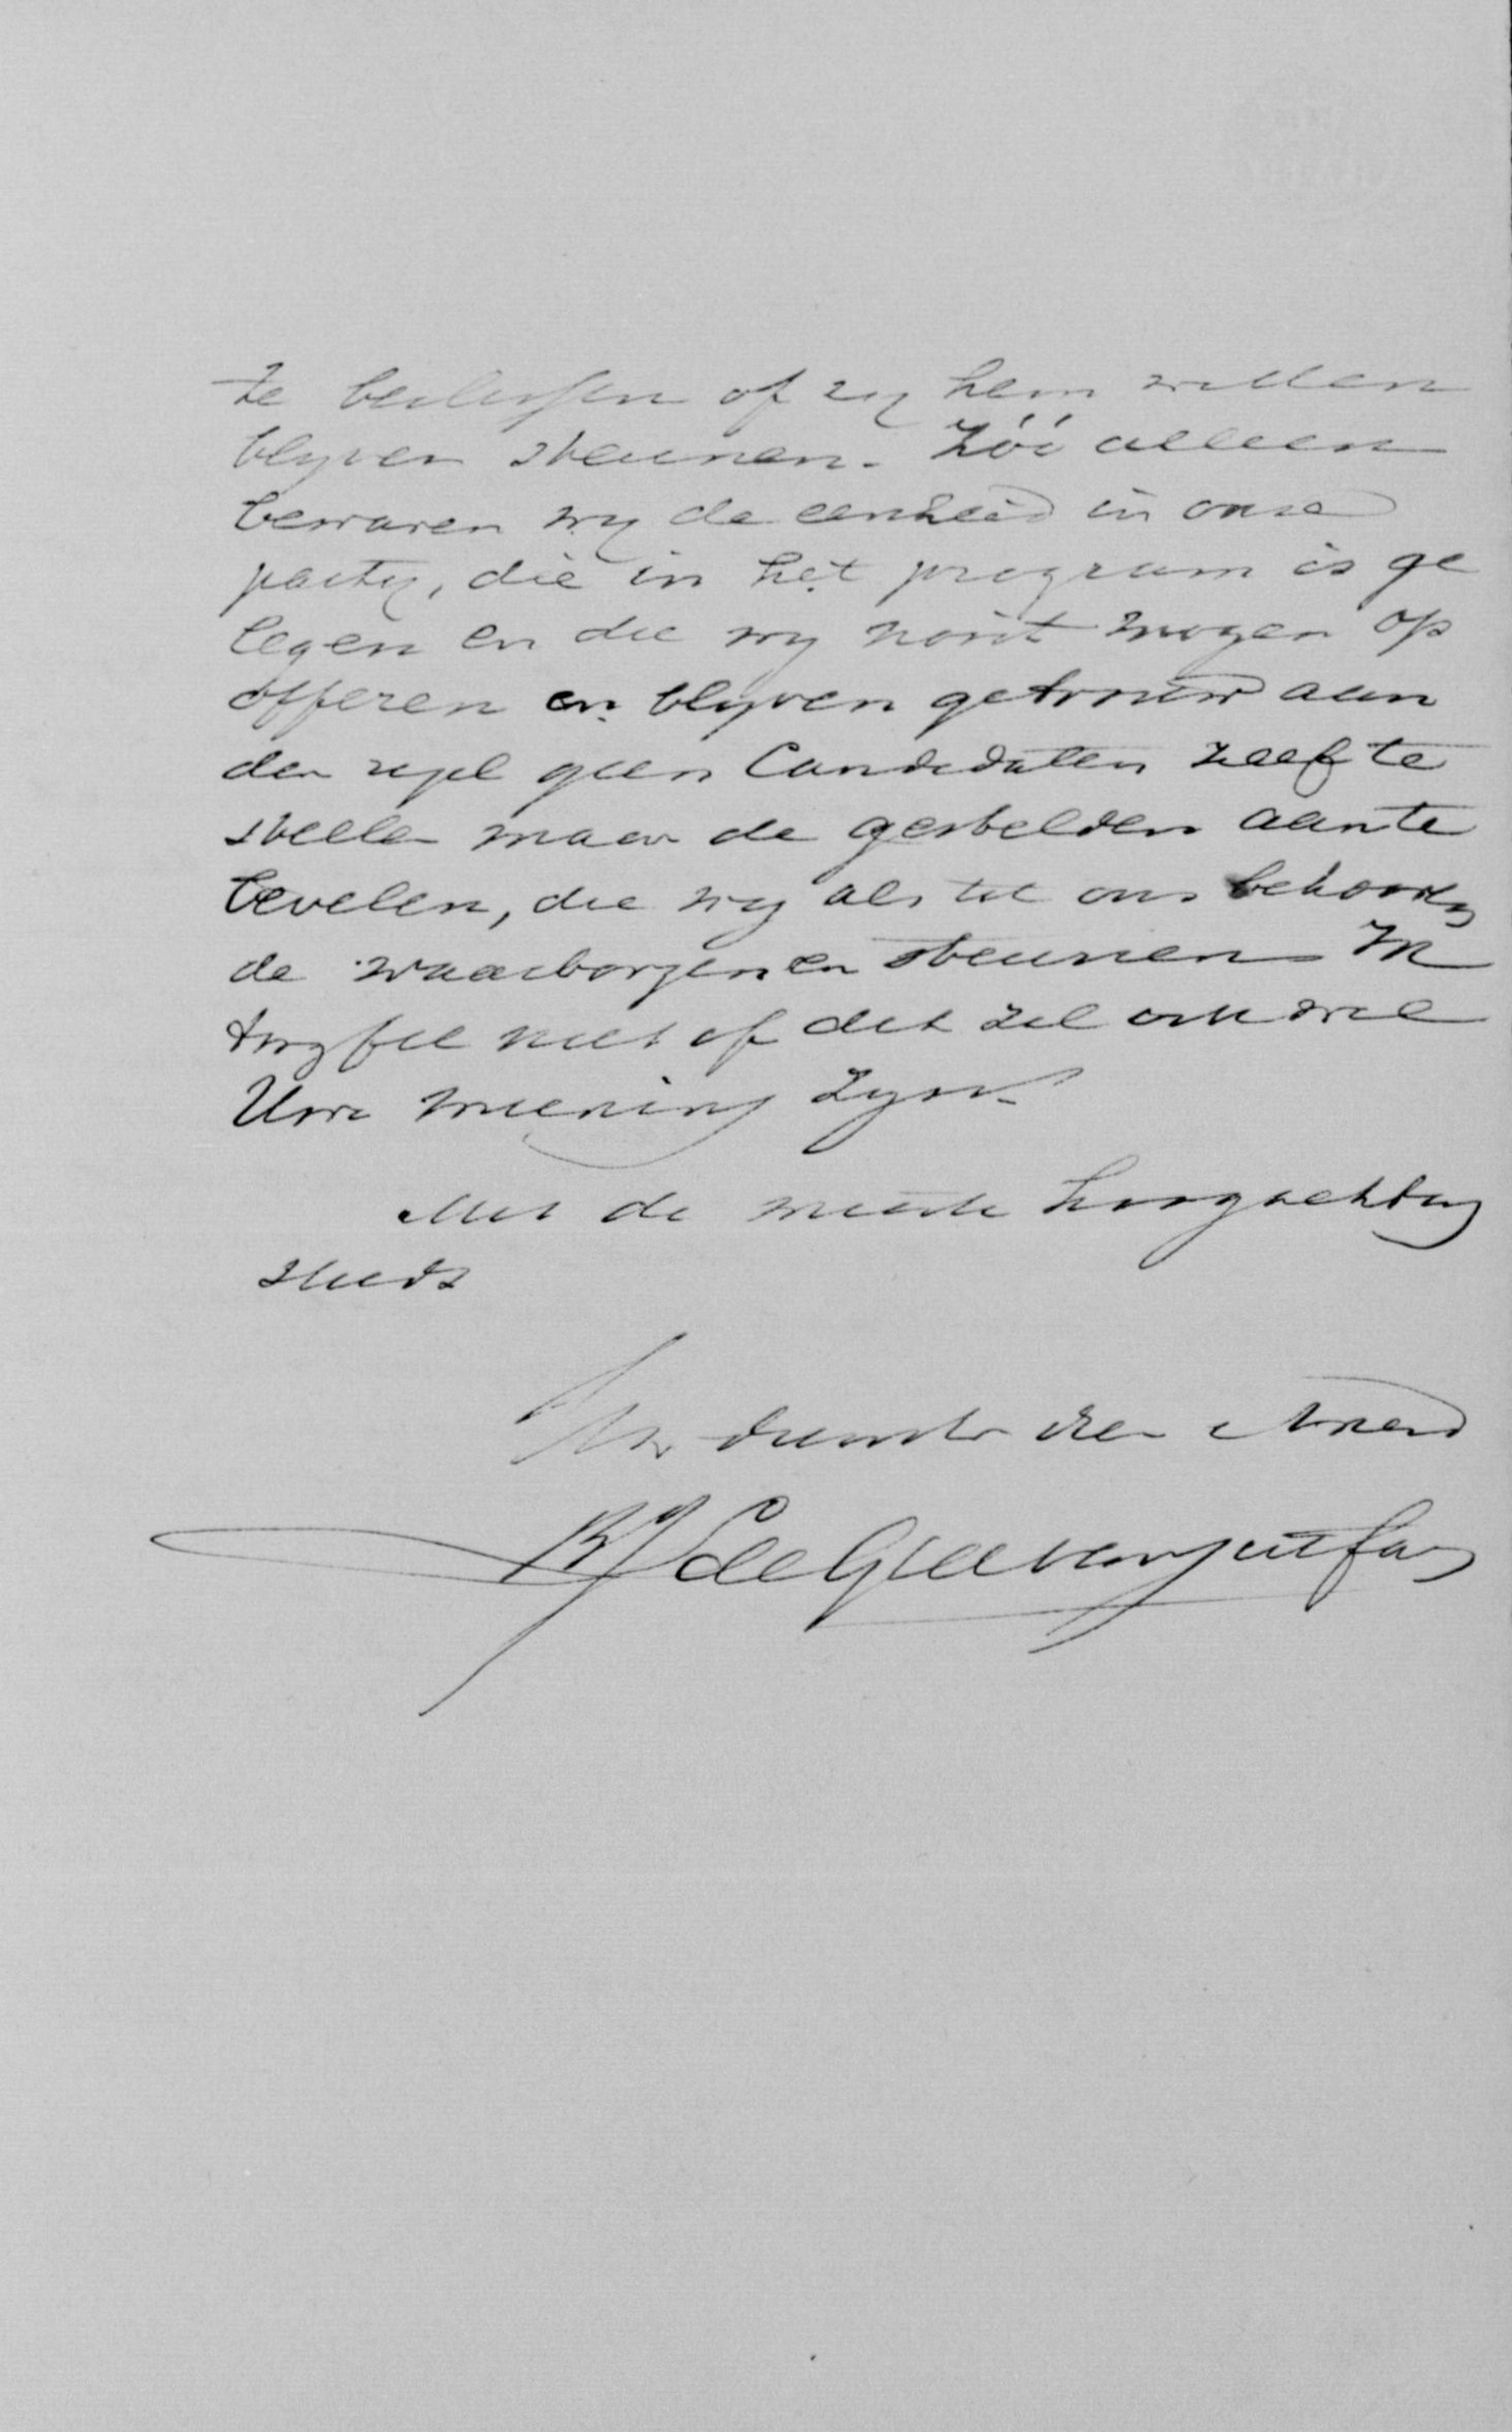 te beslissen of zy hem willen
blyven steunen. Zóó alleen
bewaren wy de eenheid in onse
party, die in het program is ge
legen en die wy nooit mogen op
offeren en blyven getrouw aan
den regel geen Candidaten zelf te
stellen maar de gestelden aan te
bevelen, die wy als tot ons behooren
de waarborgen en steunen Ik
twyfel niet of dit zal ook wel
Uwe meening zyn.
Met de meeste hoogachting
steeds
Uw dienstw dien en vriend
de Geer van Jutfaas